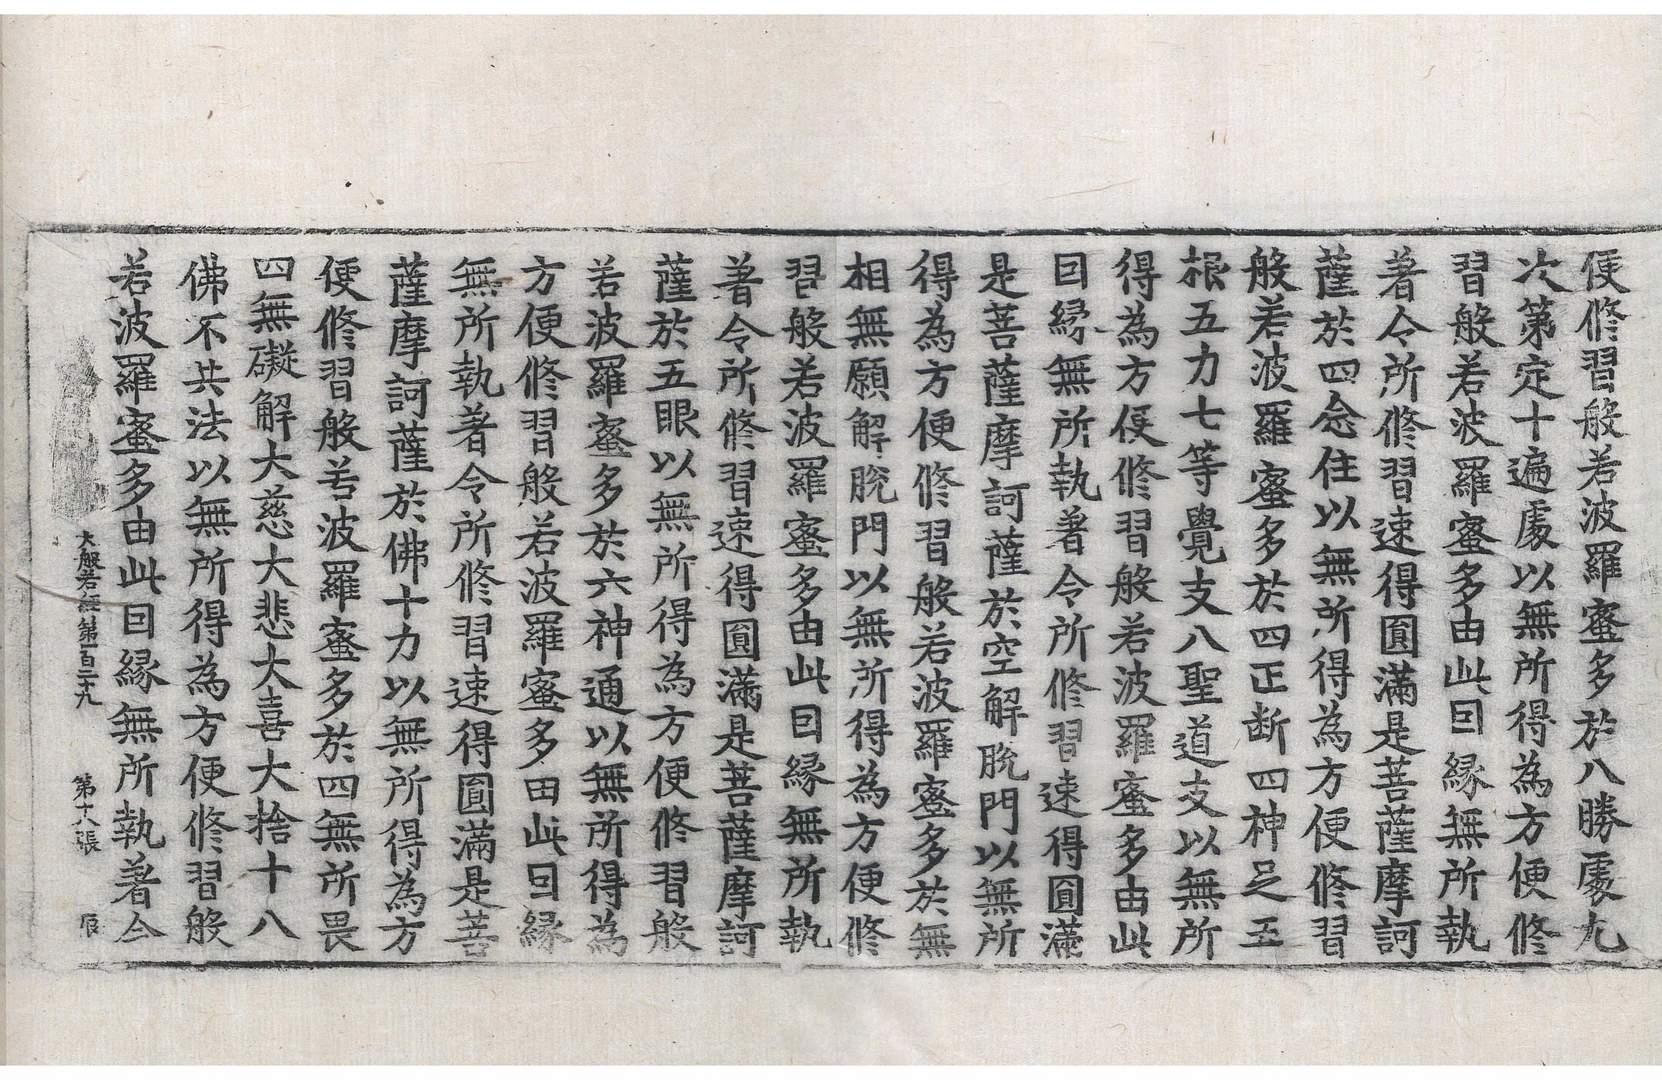 便修習般若波羅蜜多於八勝處九
次第定十遍處以無所得為方便修
習般若波羅蜜多由此因緣無所執
著令所修習速得圓滿是菩薩摩訶
薩於四念住以無所得為方便修習
般若波羅蜜多於四正断四神足五
根五力七等覺支八聖道支以無所
得為方便修習般若波羅蜜多由此
因緣無所執著令所修習速得圓滿
是菩薩摩訶薩於空解脫門以無所
得為方便修習般若波羅蜜多於無
相無願解脫門以無所得為方便修
習般若波羅蜜多由此因緣無所執
著令所修習速得圓滿是菩薩摩訶
薩於五眼以無所得為方便修習般
若波羅蜜多於六神通以無所得為
方便修習般若波羅蜜多由此因緣
無所執著令所修習速得圓滿是菩
薩摩訶薩於佛十力以無所得為方
便修習般若波羅蜜多於四無所畏
四無礙解大慈大悲大喜大捨十八
佛不共法以無所得為方便修習般
若波羅蜜多由此因緣無所執著令
大般若經第一百二十九 第十八張